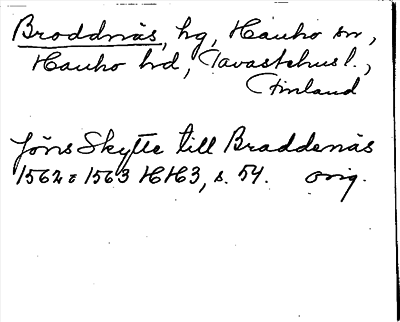 Broddnäs, hg, Hauho sn,
Hauho hd, Tavastehus l.,
Finland
Jöns Skytte till Braddenäs
1562 & 1563 HH3, s. 54. orig.